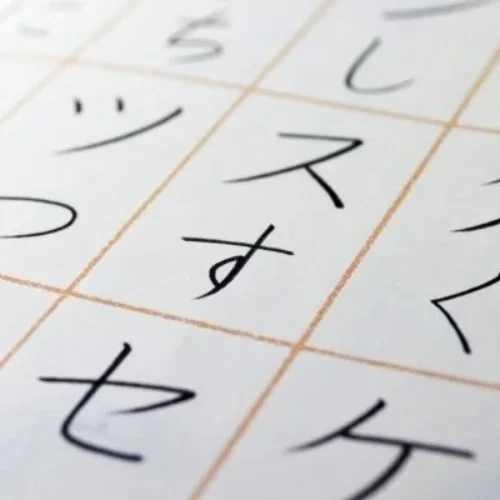 ち し
ツ ス
つ す く
セ ケ